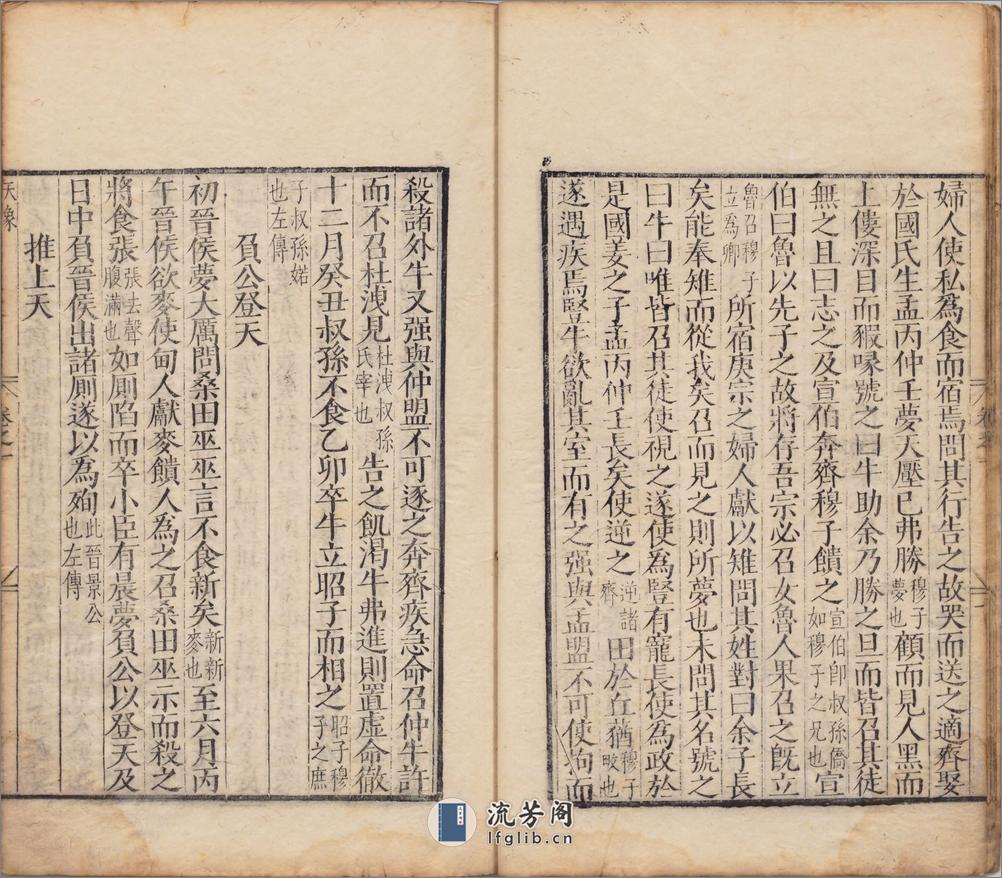 婦人使私爲食而宿焉問其行告之故哭而送之適齊娶
於國氏生孟丙仲壬夢天壓已弗勝穆子夢也顧而見人黑而
上僂深目而豭喙號之曰牛助余乃勝之旦而皆召其徒
無之且曰志之及宣伯奔齊穆子饋之宣伯卽叔孫僑如穆子之兄也宣
伯曰魯以先子之故將存吾宗必召女魯人果召之旣立
魯召穆子立爲卿所宿庚宗之婦人獻以雉問其姓對曰余子長
矣能奉雉而從我矣召而見之則所夢也未問其名號之
曰牛曰唯皆召其徒使視之遂使爲豎有寵長使為政於
是國姜之子孟丙仲壬長矣使逆之逆諸齊田於丘蕕穆子畋也
遂遇疾焉豎牛欲亂其室而有之强與孟盟不可使拘而
殺諸外牛又强與仲盟不可逐之奔齊疾急命召仲牛許
而不召杜洩見杜洩叔孫氏宰也告之飢渴牛弗進則置虛命徹
十二月癸丑叔孫不食乙卯卒牛立昭子而相之昭子穆子之庶
子叔孫婼也左傳
負公登天
初晉侯夢大厲問桑田巫巫言不食新矣新新麥也至六月丙
午晉侯欲麥使甸人獻麥饋人為之召桑田巫示而殺之
將食張張去聲腹滿也如厠陷而卒小臣有晨夢負公以登天及
日中負晉侯出諸厠遂以為殉此晉景公也左傳
推上天
天象
卷之一
流芳阁
lfglib.cn